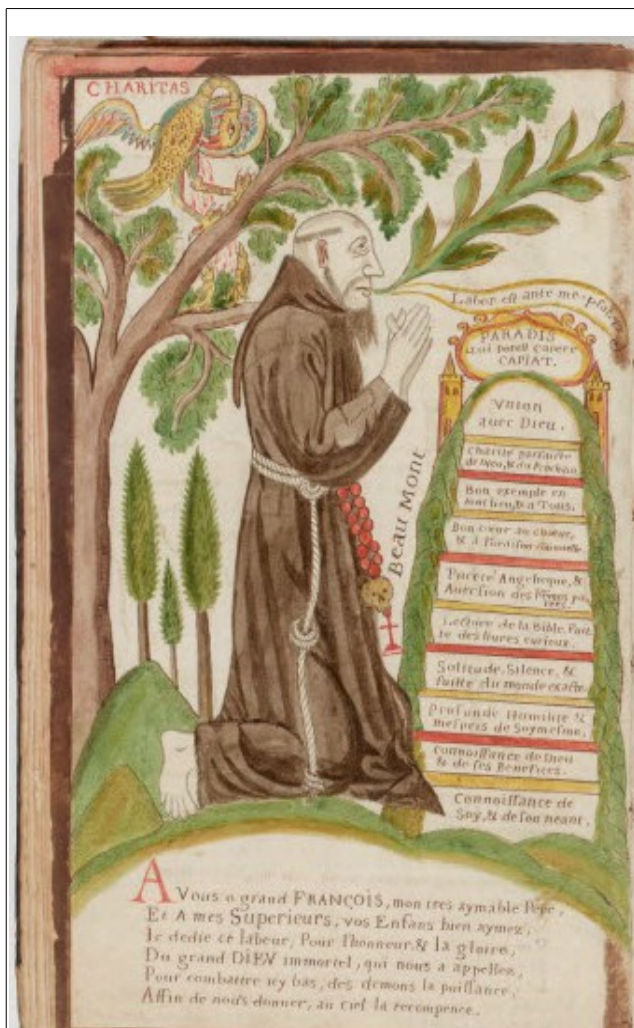 CHARITAS
Labor est ante me psal
PARADIS
qui potest capere
CAPIAT.
Vnion
auec Dieu.
Charité parfaitte
de Dieu, & du Prochain.
Bon exemple en
tout lieu, & a Tous.
Bon cœur au chœur,
& à l'oraison
Pureté Angelique, &
Auersion des
Lecture de la Bible. fuit
te des liures curieux.
Solitude, Silence, &
fuitte du monde exacte.
Profunde Humilité &
mespris de Soymesme.
Connoissance de Dieu
& de ses Benefices.
Connoissance de
Soy, & de son neant.
Beau Mont
A Vous o grand FRANÇOIS, mon tres aymable Pere,
Et A mes Superieurs, vos Enfans bien aymez,
Ie dedie ce labeur, Pour l'honneur & la gloire,
Du grand DIEV immortel, qui nous a appellez,
Pour combattre icy bas, des demons la puissance,
Affin de nous donner, au ciel la recompence.